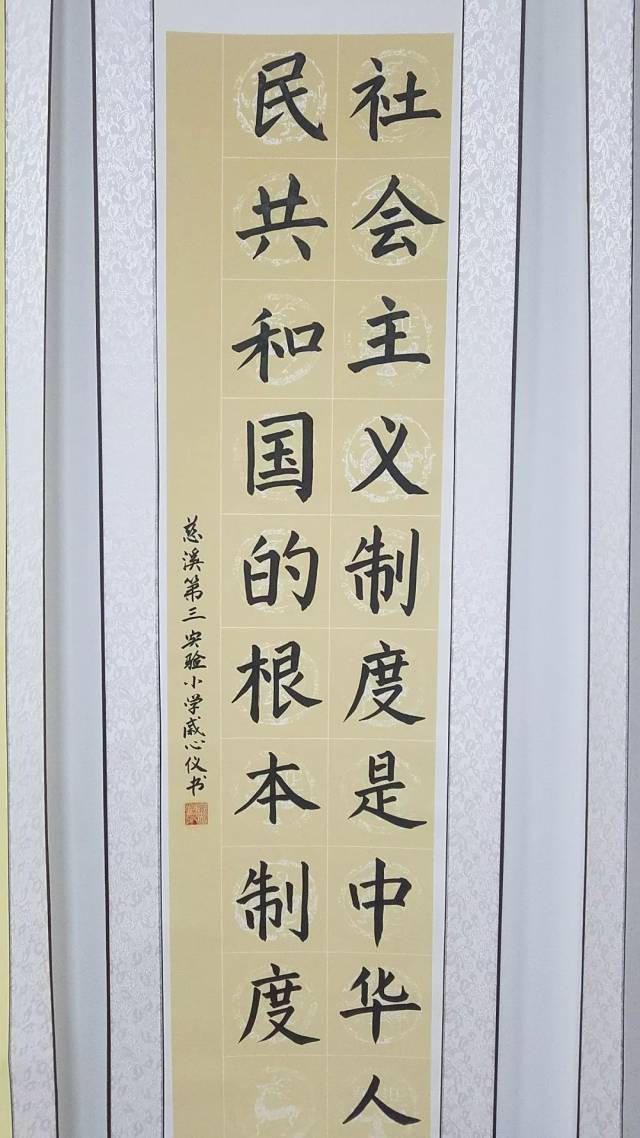 社会主义制度是中华人
民共和国的根本制度
慈溪第三实验小学戚心仪书